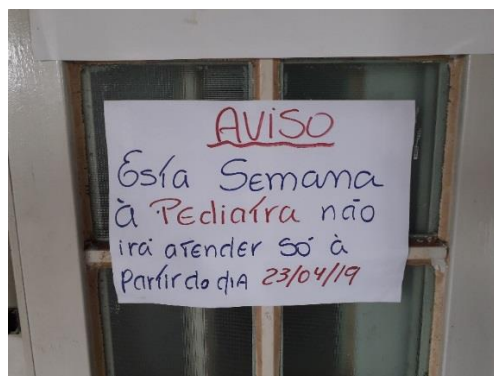 AVISO
Esta Semana
à Pediatra não
irá atender Só à
Partir do diA 23/04/19